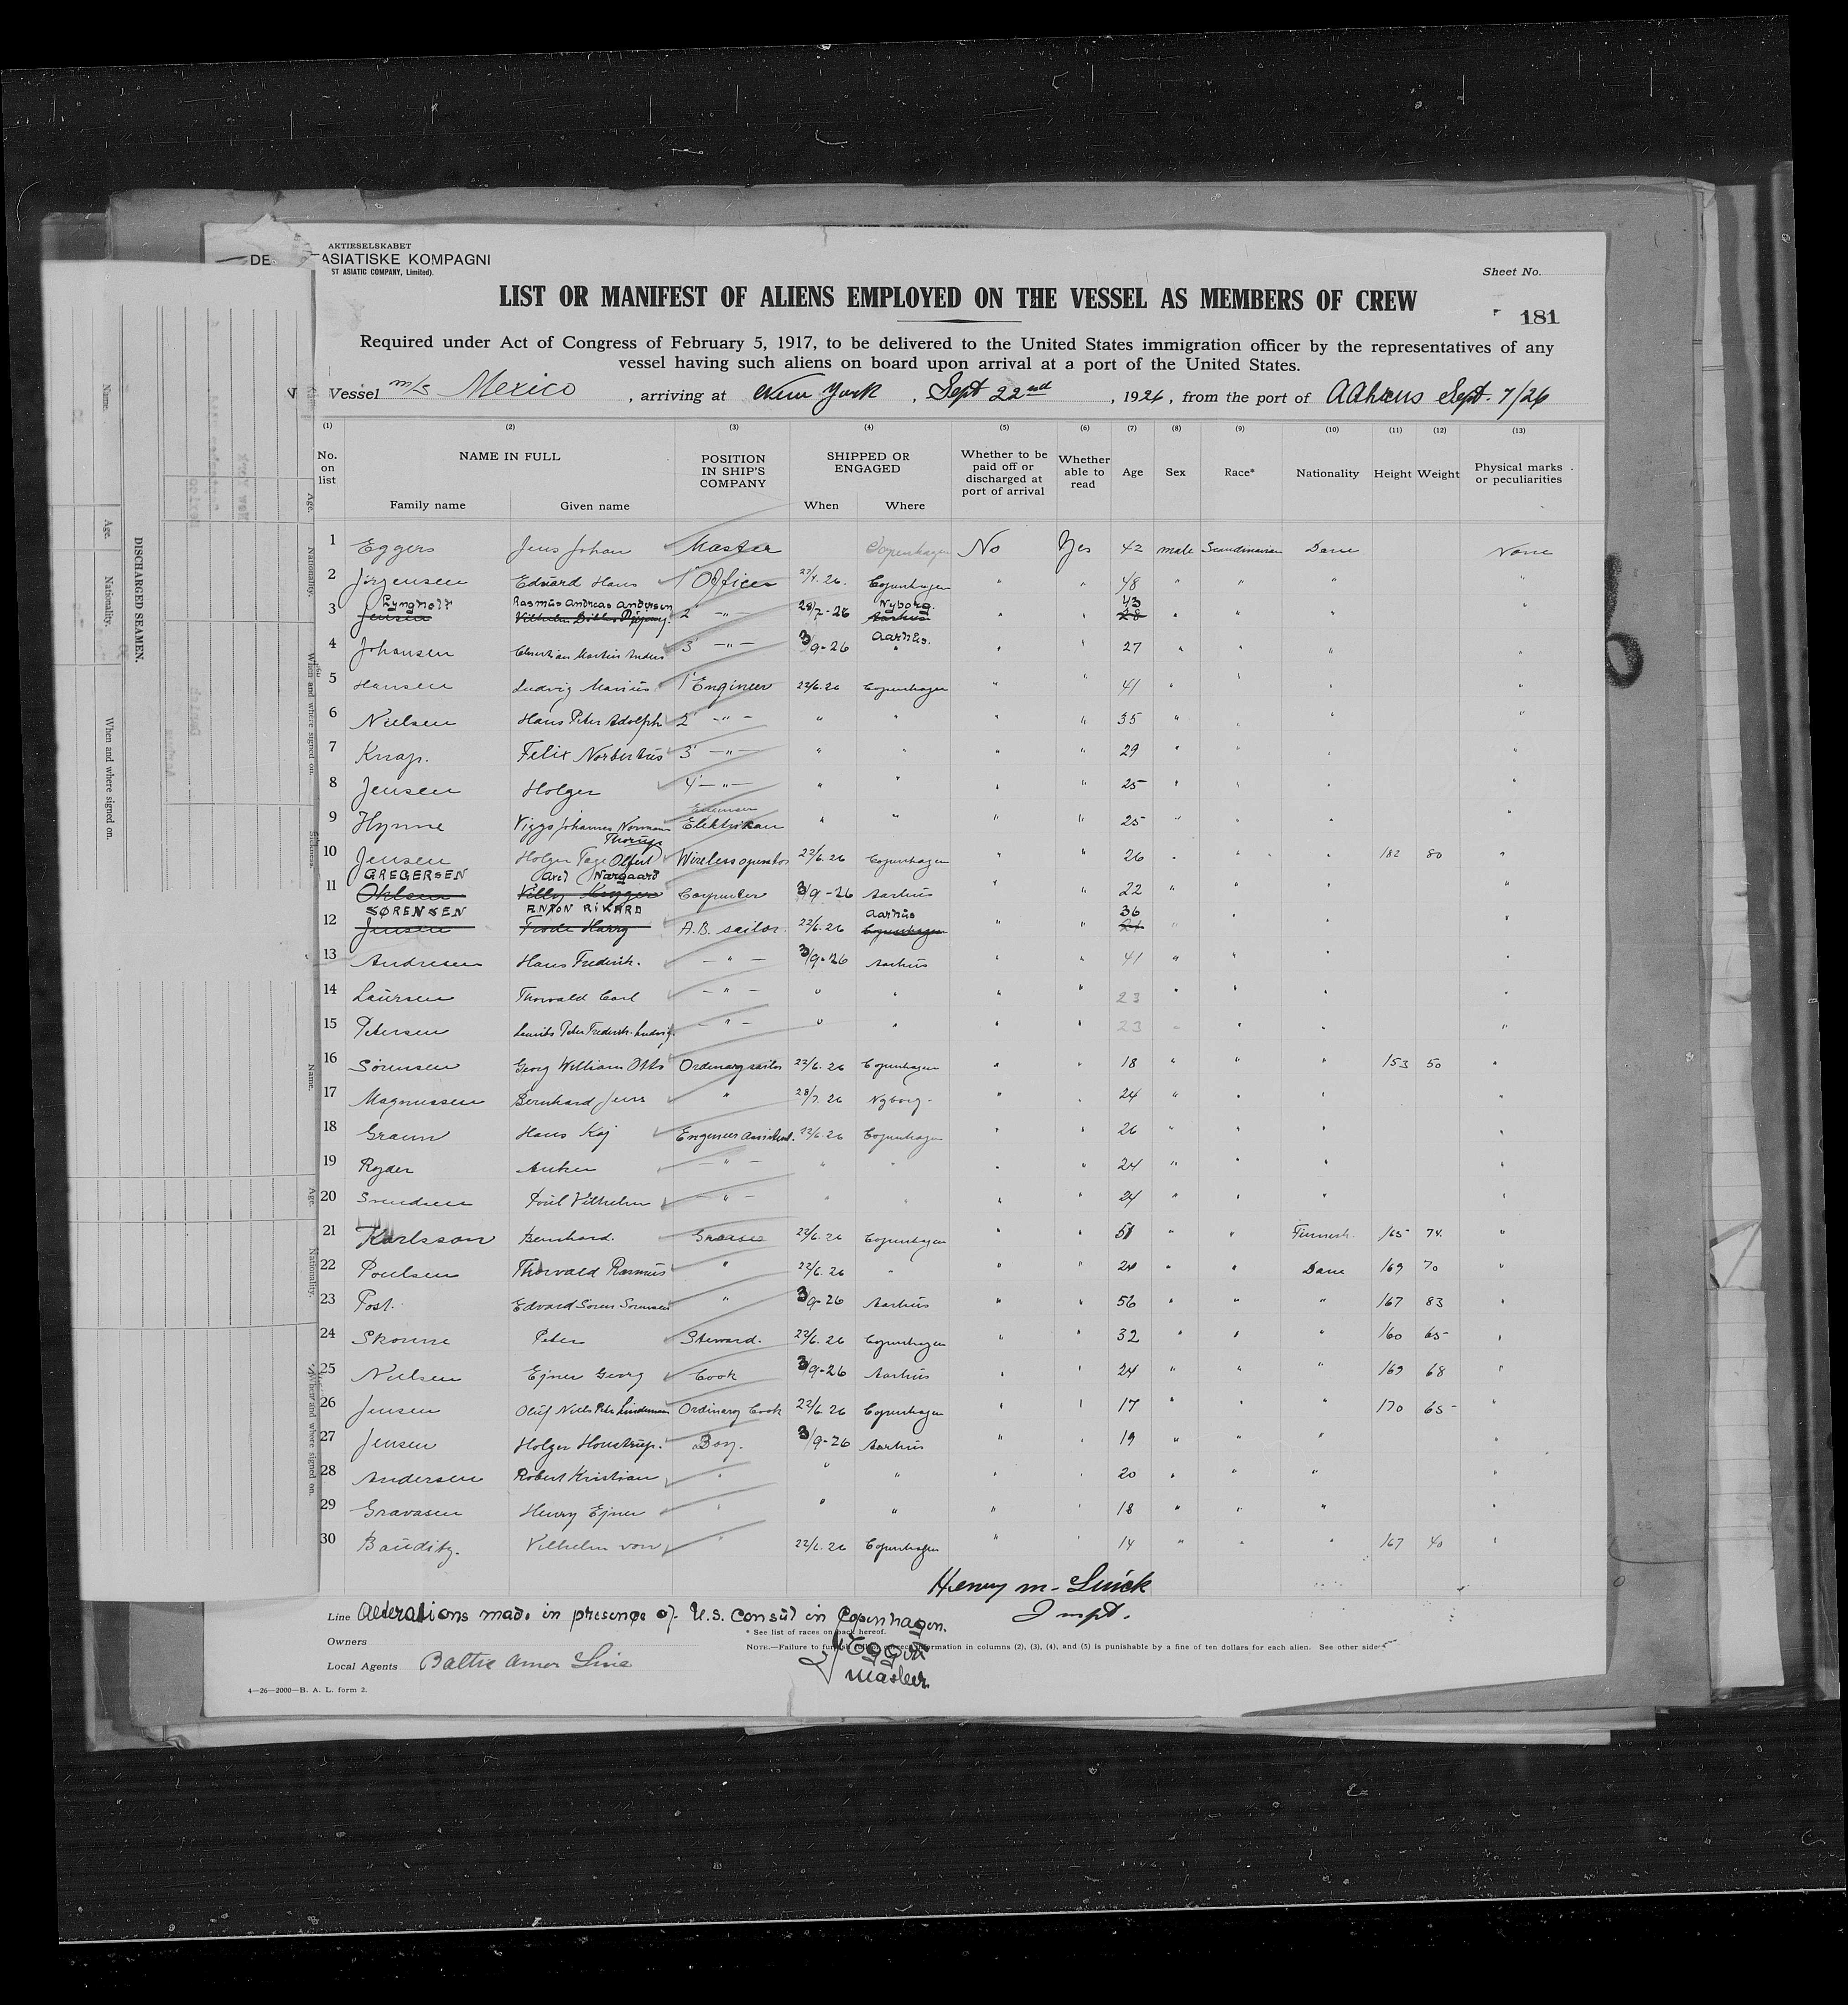 AKTIESELSKABET
DE ASIATISKE KOMPAGNI
ST ASIATIC COMPANY, Limited).
Sheet No.
LIST OR MANIFEST OF ALIENS EMPLOYED ON THE VESSEL AS MEMBERS OF CREW
181
Required under Act of Congress of February 5, 1917, to be delivered to the United States immigration officer by the representatives of any
vessel having such aliens on board upon arrival at a port of the United States.
Vessel m/s Mexico, arriving at New York, Sept 22nd, 1926, from the port of Aahrus Sept. 7/26
(1) (2) (3) (4) (5) (6) (7) (8) (9) (10) (11) (12) (13)
No. on list NAME IN FULL Family name Given name POSITION IN SHIP'S COMPANY SHIPPED OR ENGAGED When Where Whether to be paid off or discharged at port of arrival Whether able to read Age Sex Race* Nationality Height Weight Physical marks or peculiarities
1 Eggers Jens Johan Master Copenhagen No Yes 42 male Scandinavian Dane None
2 Jörgensen Edvard Hans 1' Officer 27/4. 26. Copenhagen " " 48 " " " "
Lyngholt Rasmus Andreas Andersen Nyborg. 43
3 Jensen 2' -"- 28/7-26 Aarhus " " 28 " " " "
Aarhus.
4 Johansen Christian Martin Anders 3' -"- 3/9-26 " " " 27 " " " "
5 Hansen Ludvig Marius 1' Engineer 22/6.26 Copenhagen " " 41 " " " "
6 Nielsen Hans Peter Adolph 2' -"- " " " " 35 " " " "
7 Knap. Felix Norbertus 3' -"- " " " " 29 " " " "
8 Jensen Holger 4' -"- " " " " 25 " " " "
9 Hynne Viggo Johannes Normann Elektrikan " " " " 25 " " " "
Thorup
10 Jensen Holger Tage Olfert Wireless operator 22/6.26 Copenhagen " " 26 " " " 182 80 "
GREGERSEN Axel Nørgaard
11 Ohlsen Villy Carpenter 3/9-26 Aarhus " " 22 " " " "
SØRENSEN ANTON RIKARD Aarhus 36
12 Jensen Frode Harry A.B. sailor 22/6.26 Copenhagen " " 21 " " " "
13 Andresen Hans Frederik. -"- 3/9-26 Aarhus " " 41 " " " "
14 Laursen Thorvald Carl -"- " " " " 23 " " " "
15 Petersen Laurits Peter Frederik Ludvig. -"- " " " " 23 " " " "
16 Sörensen Georg William Otto Ordinary sailor 22/6. 26 Copenhagen " " 18 " " " 153 50 "
17 Magnussen Bernhard Jens " 28/7. 26 Nyborg " " 24 " " " "
18 Graun Hans Kaj Engineer assistent. 22/6.26 Copenhagen " " 26 " " " "
19 Ryder Anker -"- " " " " 24 " " " "
20 Svendsen Poul Vilhelm -"- " " " " 24 " " " "
21 Karlsson Bernhard. Greaser 22/6.26 Copenhagen " " 51 " " Finnish. 165 74. "
22 Poulsen Thorvald Rasmus " 22/6.26 " " " 20 " " Dane 169 70 "
23 Post. Edvard Sören Sörensen " 3/9-26 Aarhus " " 56 " " " 167 83 "
24 Skonne Peter Steward. 22/6.26 Copenhagen " " 32 " " " 160 65 "
25 Nielsen Ejner Georg Cook 3/9-26 Aarhus " " 24 " " " 169 68 "
26 Jensen Oluf Niels Peter Lindemann Ordinary Cook 22/6 26 Copenhagen " " 17 " " " 170 65 "
27 Jensen Holger Honstrup. Boy. 3/9-26 Aarhus " " 19 " " " "
28 Andersen Robert Kristian " " " " " 20 " " " "
29 Gravasen Henry Ejner " " " " " 18 " " " "
30 Bauditz. Vilhelm von " 22/6.26 Copenhagen " " 14 " " " 167 40 "
Henry M. Quick
Inspt.
Line Alterations made in presence of U.S. Consul in Copenhagen.
* See list of races on back hereof.
Owners
NOTE.—Failure to furnish correct information in columns (2), (3), (4), and (5) is punishable by a fine of ten dollars for each alien. See other side
J Eggers
Master
Local Agents Baltic Amer Line
4—26—2000—B. A. L. form 2.
DISCHARGED SEAMEN.
Name. Age. Nationality. When and where signed on.
Age. Nationality. When and where signed on. Name. Age. Nationality. When and where signed on.